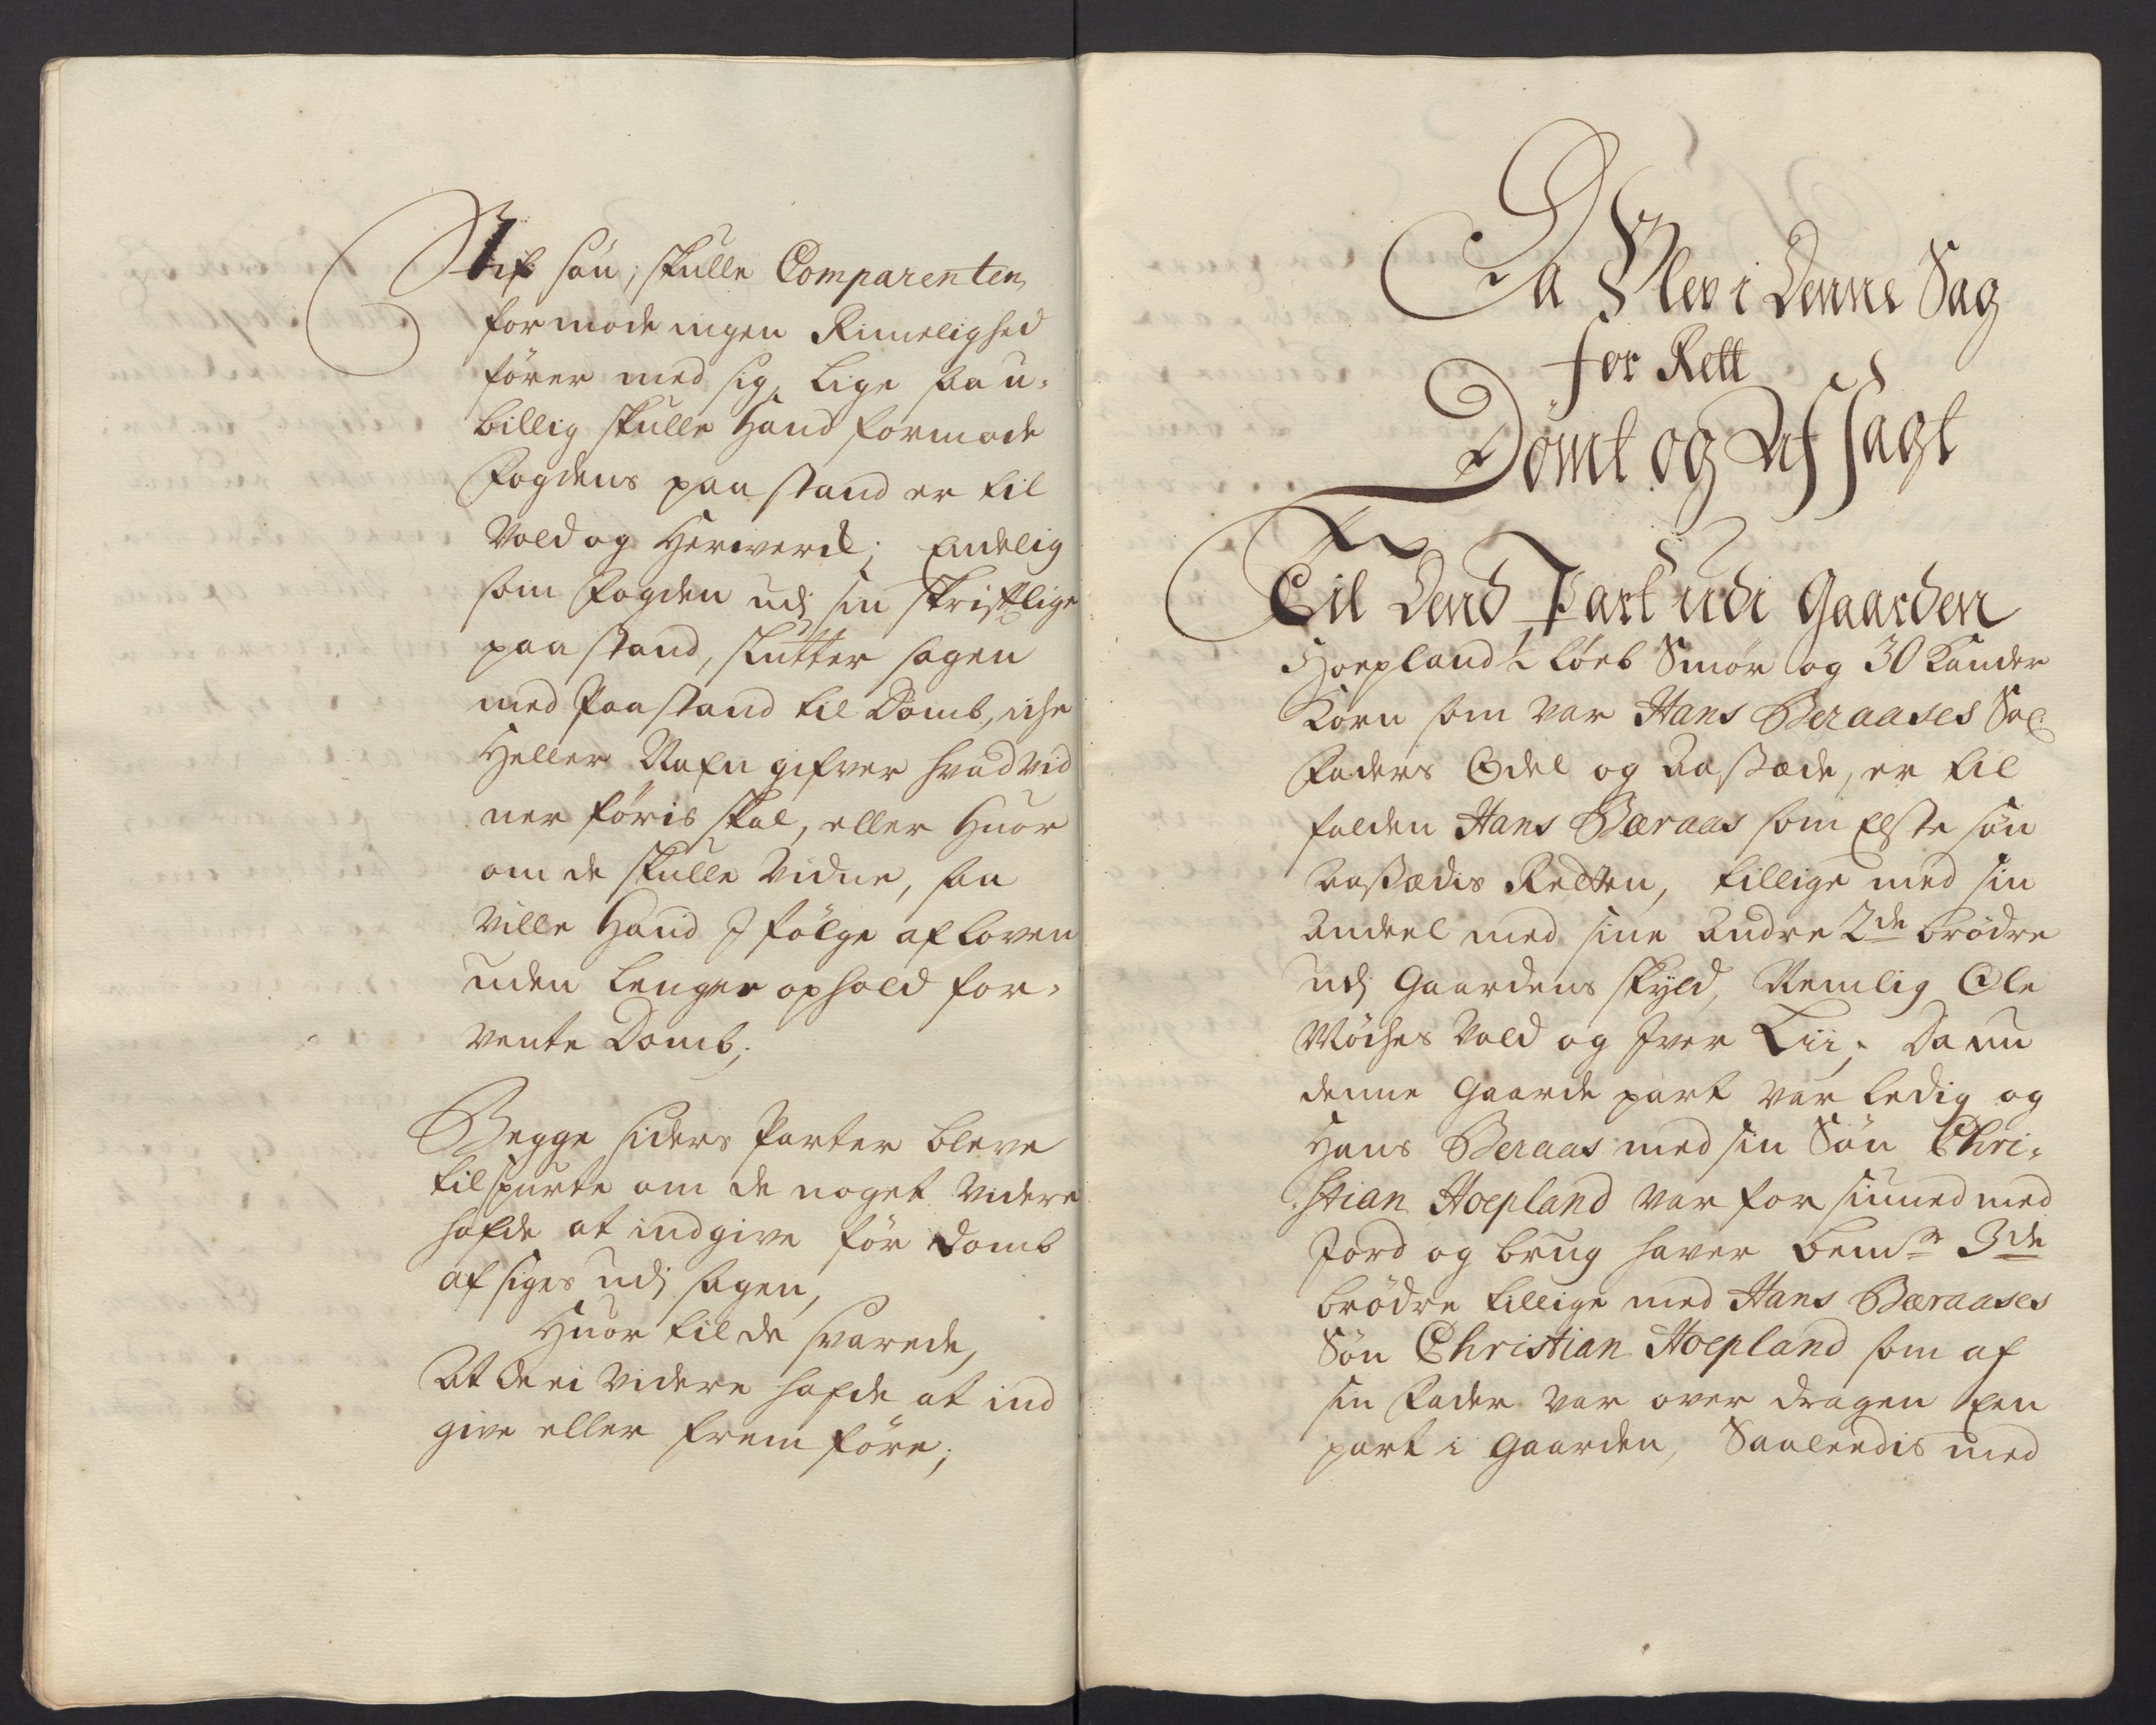 Stif Søn, skulle Comparenten
formode ingen Rimelighed
fører med sig, lige saa u-
billig skulle Hand formode
Fogdens paastand er til
Vold og Herwerck; Endelig
som Fogden udj sin skriftlige
paastand, slutter sagen
med Paastand til Domb, iche
Heller Nafn gifver hvad vid
ner føris skal, eller Huor
om de skulle Vidne, saa
ville Hand J følge af Loven
uden lenger ophold for-
vente Domb;
Begge siders Parter bleve
tilspurte om de noget videre
hafde at indgive før Domb
afsiges udj sagen,
Huor til de svarede,
At de ei videre hafde at ind
give eller frem føre;
Da Blev i Denne Sag
for Rett
Dømt og Afsagt
Til Dend Part udi Gaarden
Hoepland 1/2 Løeb Smør og 30 Kander
Korn som var Hans Beraases Sal:
Faders Odel og Aasæde, er til
falden Hans Bæraas som Elste søn
Aasædis Retten, tillige med sin
Andeel med sine Andre 2de brødre
udj Gaardens skyld, Nemlig Ole
Møches Vold og Iver Lii; Da nu
denne Gaarde part var ledig og
Hans Beraas med sin Søn Chri-
stian Hoepland var forsiuned med
Jord og brug haver bemte 3de
brødre tillige med Hans Bæraases
Søn Christian Hoepland som af
sin Fader var over dragen Een
part i Gaarden, Saaleedis med